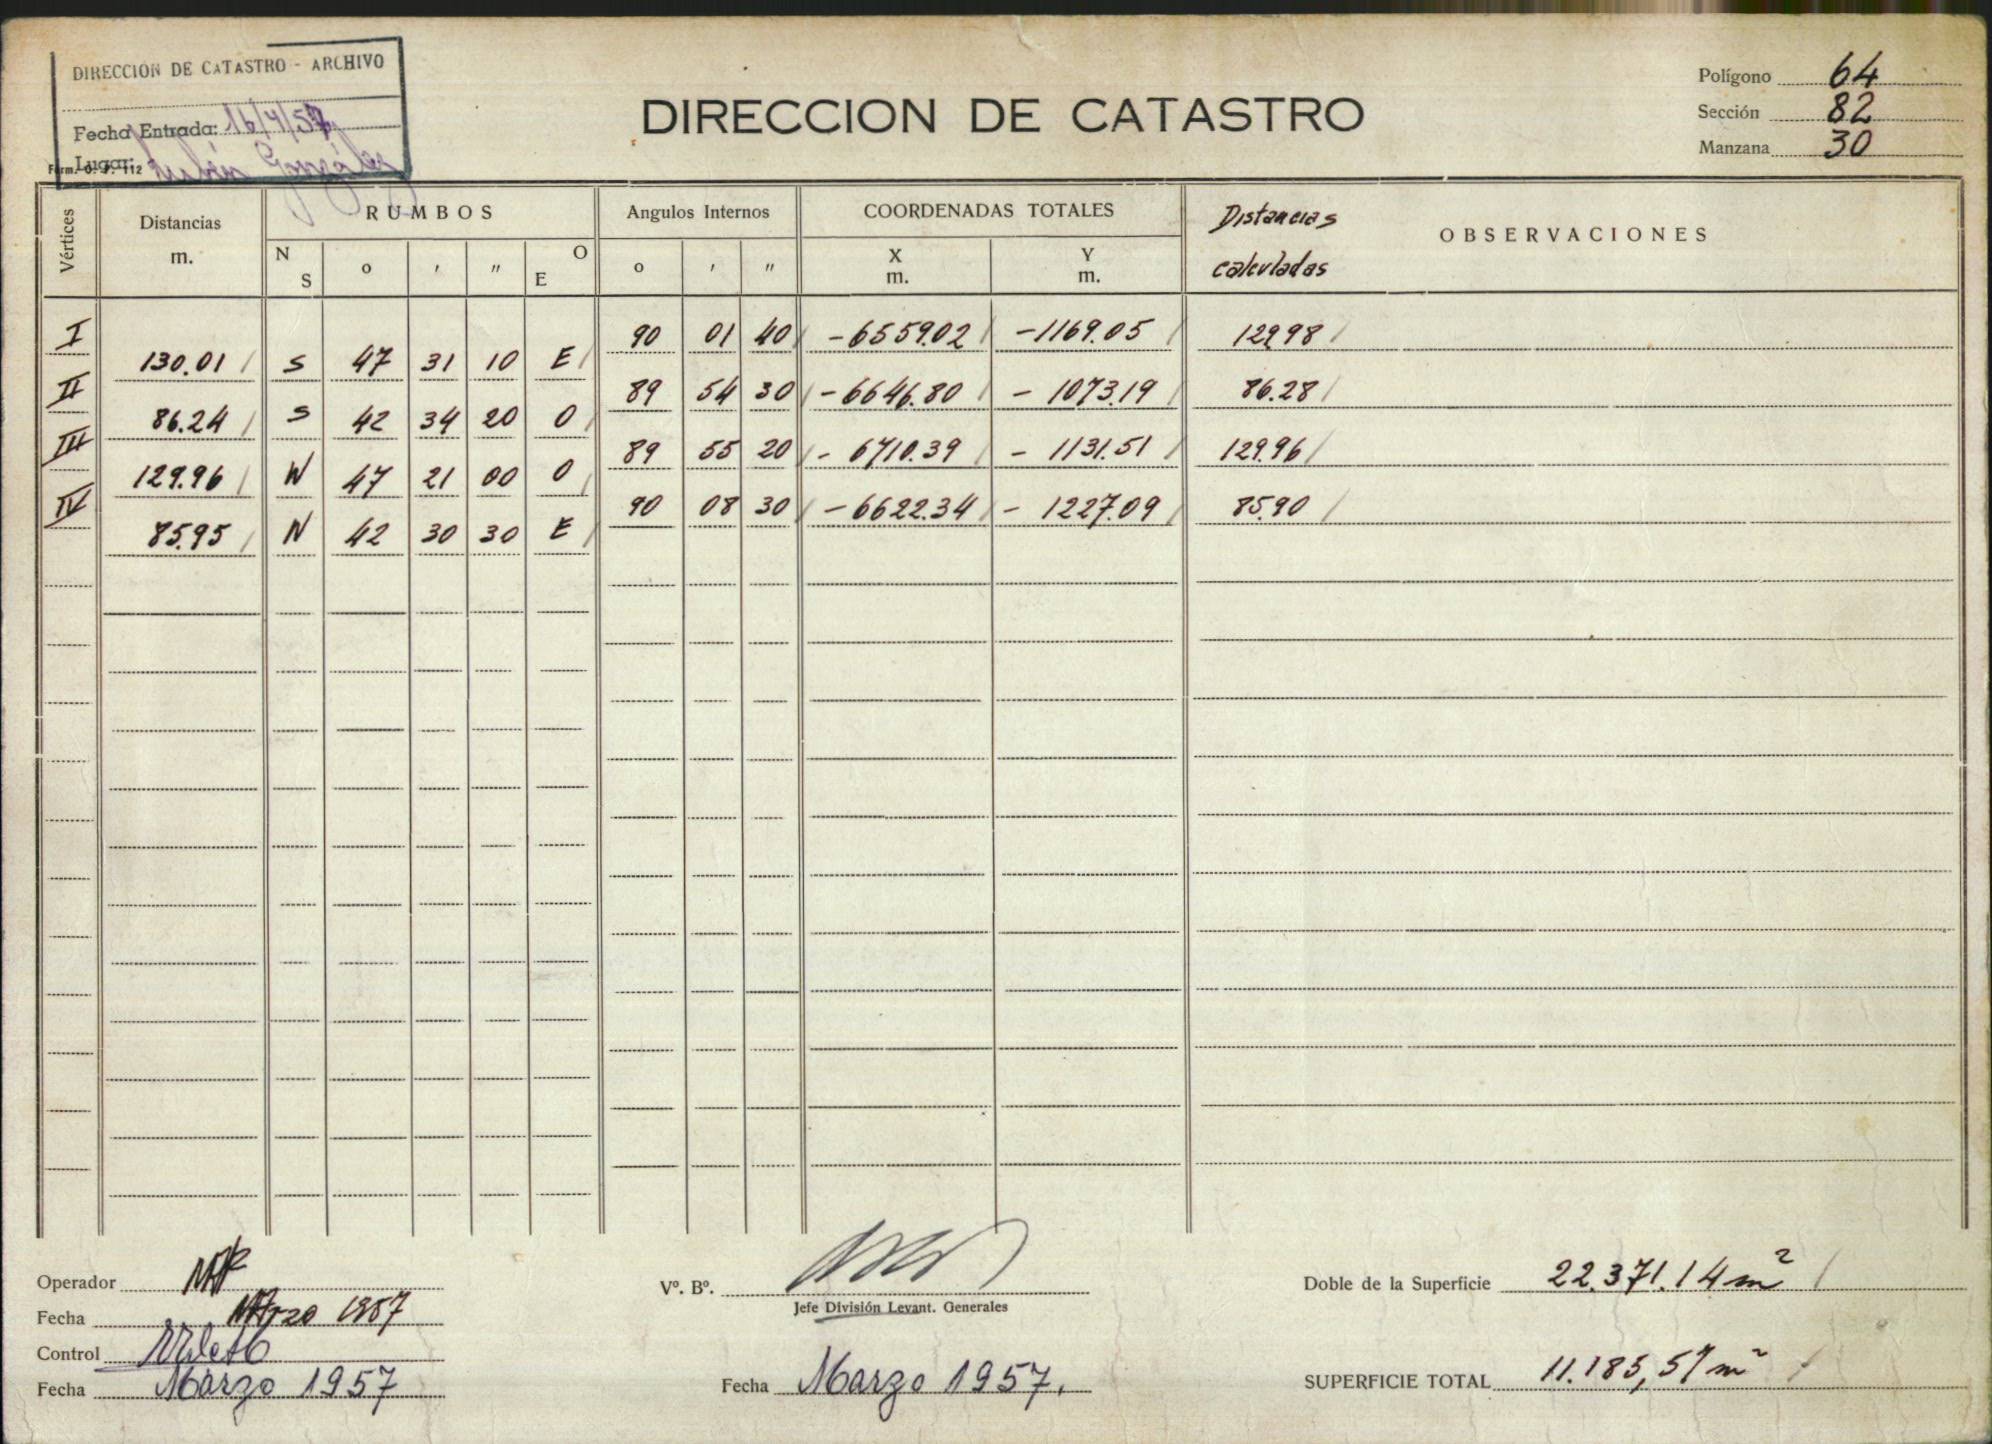 DIRECCION DE CATASTRO - ARCHIVO
Fecha Entrada: 16/4/57
Lugar: Rubén González
Form. O. P. 112
DIRECCION DE CATASTRO
Polígono 64
Sección 82
Manzana 30
Vértices Distancias m. RUMBOS Angulos Internos COORDENADAS TOTALES Distancias calculadas OBSERVACIONES
N S o ' " O E o ' " X m. Y m.
I 90 01 40 -6559.02 -1169.05 129.98
130.01 S 47 31 10 E
II 89 54 30 -6646.80 - 1073.19 86.28
86.24 S 42 34 20 O
III 89 55 20 - 6710.39 - 1131.51 129.96
129.96 N 47 21 00 O
IV 90 08 30 -6622.34 - 1227.09 85.90
85.95 N 42 30 30 E
Operador
Fecha Marzo 1957
Control
Fecha Marzo 1957
Vº. Bº.
Jefe División Levant. Generales
Fecha Marzo 1957.
Doble de la Superficie 22.371.14 m²
SUPERFICIE TOTAL 11.185,57 m²